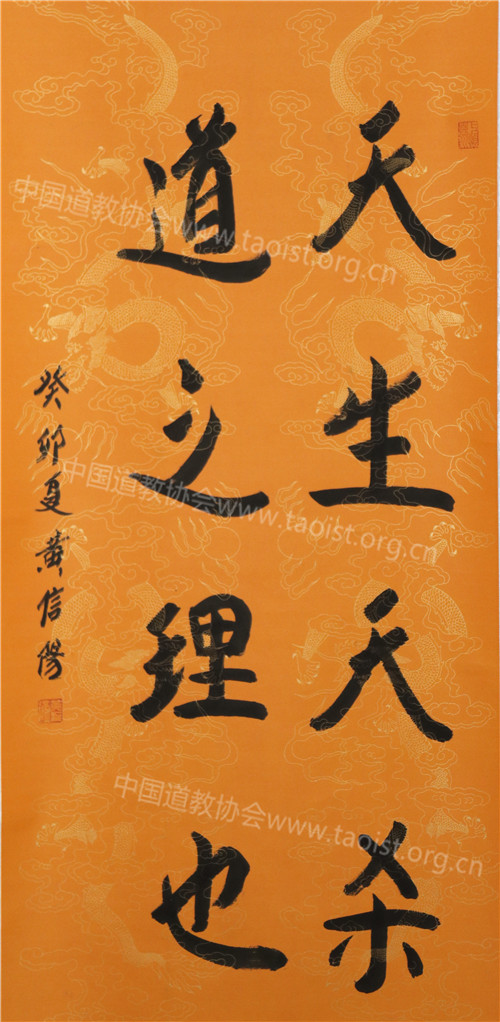 天生天杀
道之理也
癸卯夏黄信阳
中国道教协会www.taoist.org.cn
中国道教协会www.taoist.org.cn
中国道教协会www.taoist.org.cn